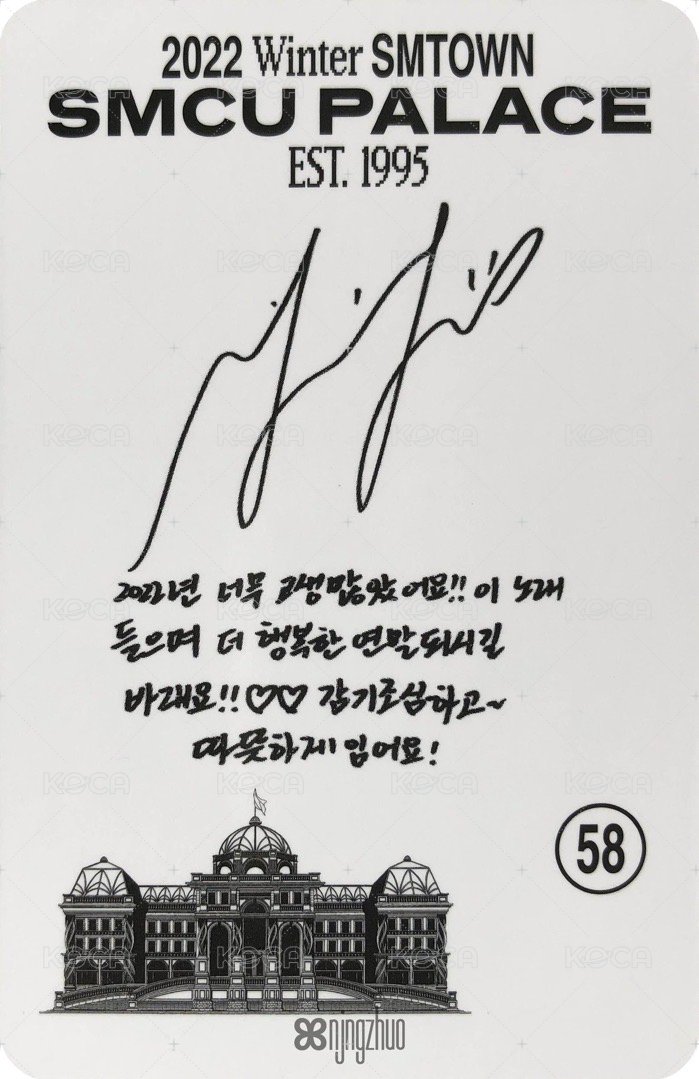 2022 Winter SMTOWN
SMCU PALACE
EST. 1995
2022년 너무 고생 많았어요!! 이 노래
들으며 더 행복한 연말 되시길
바래요!! ♡♡ 감기조심하고~
따뜻하게 입어요!
58
njngzhuo
KOCA